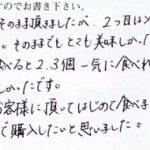 すのでお書き下さい。
そのまま頂きましたが、2つ目は
。そのままでもとても美味しかった
べると2.3個一気に食べれ
しかったです。
お客様に頂いてはじめて食べま
で購入したいと思いました。